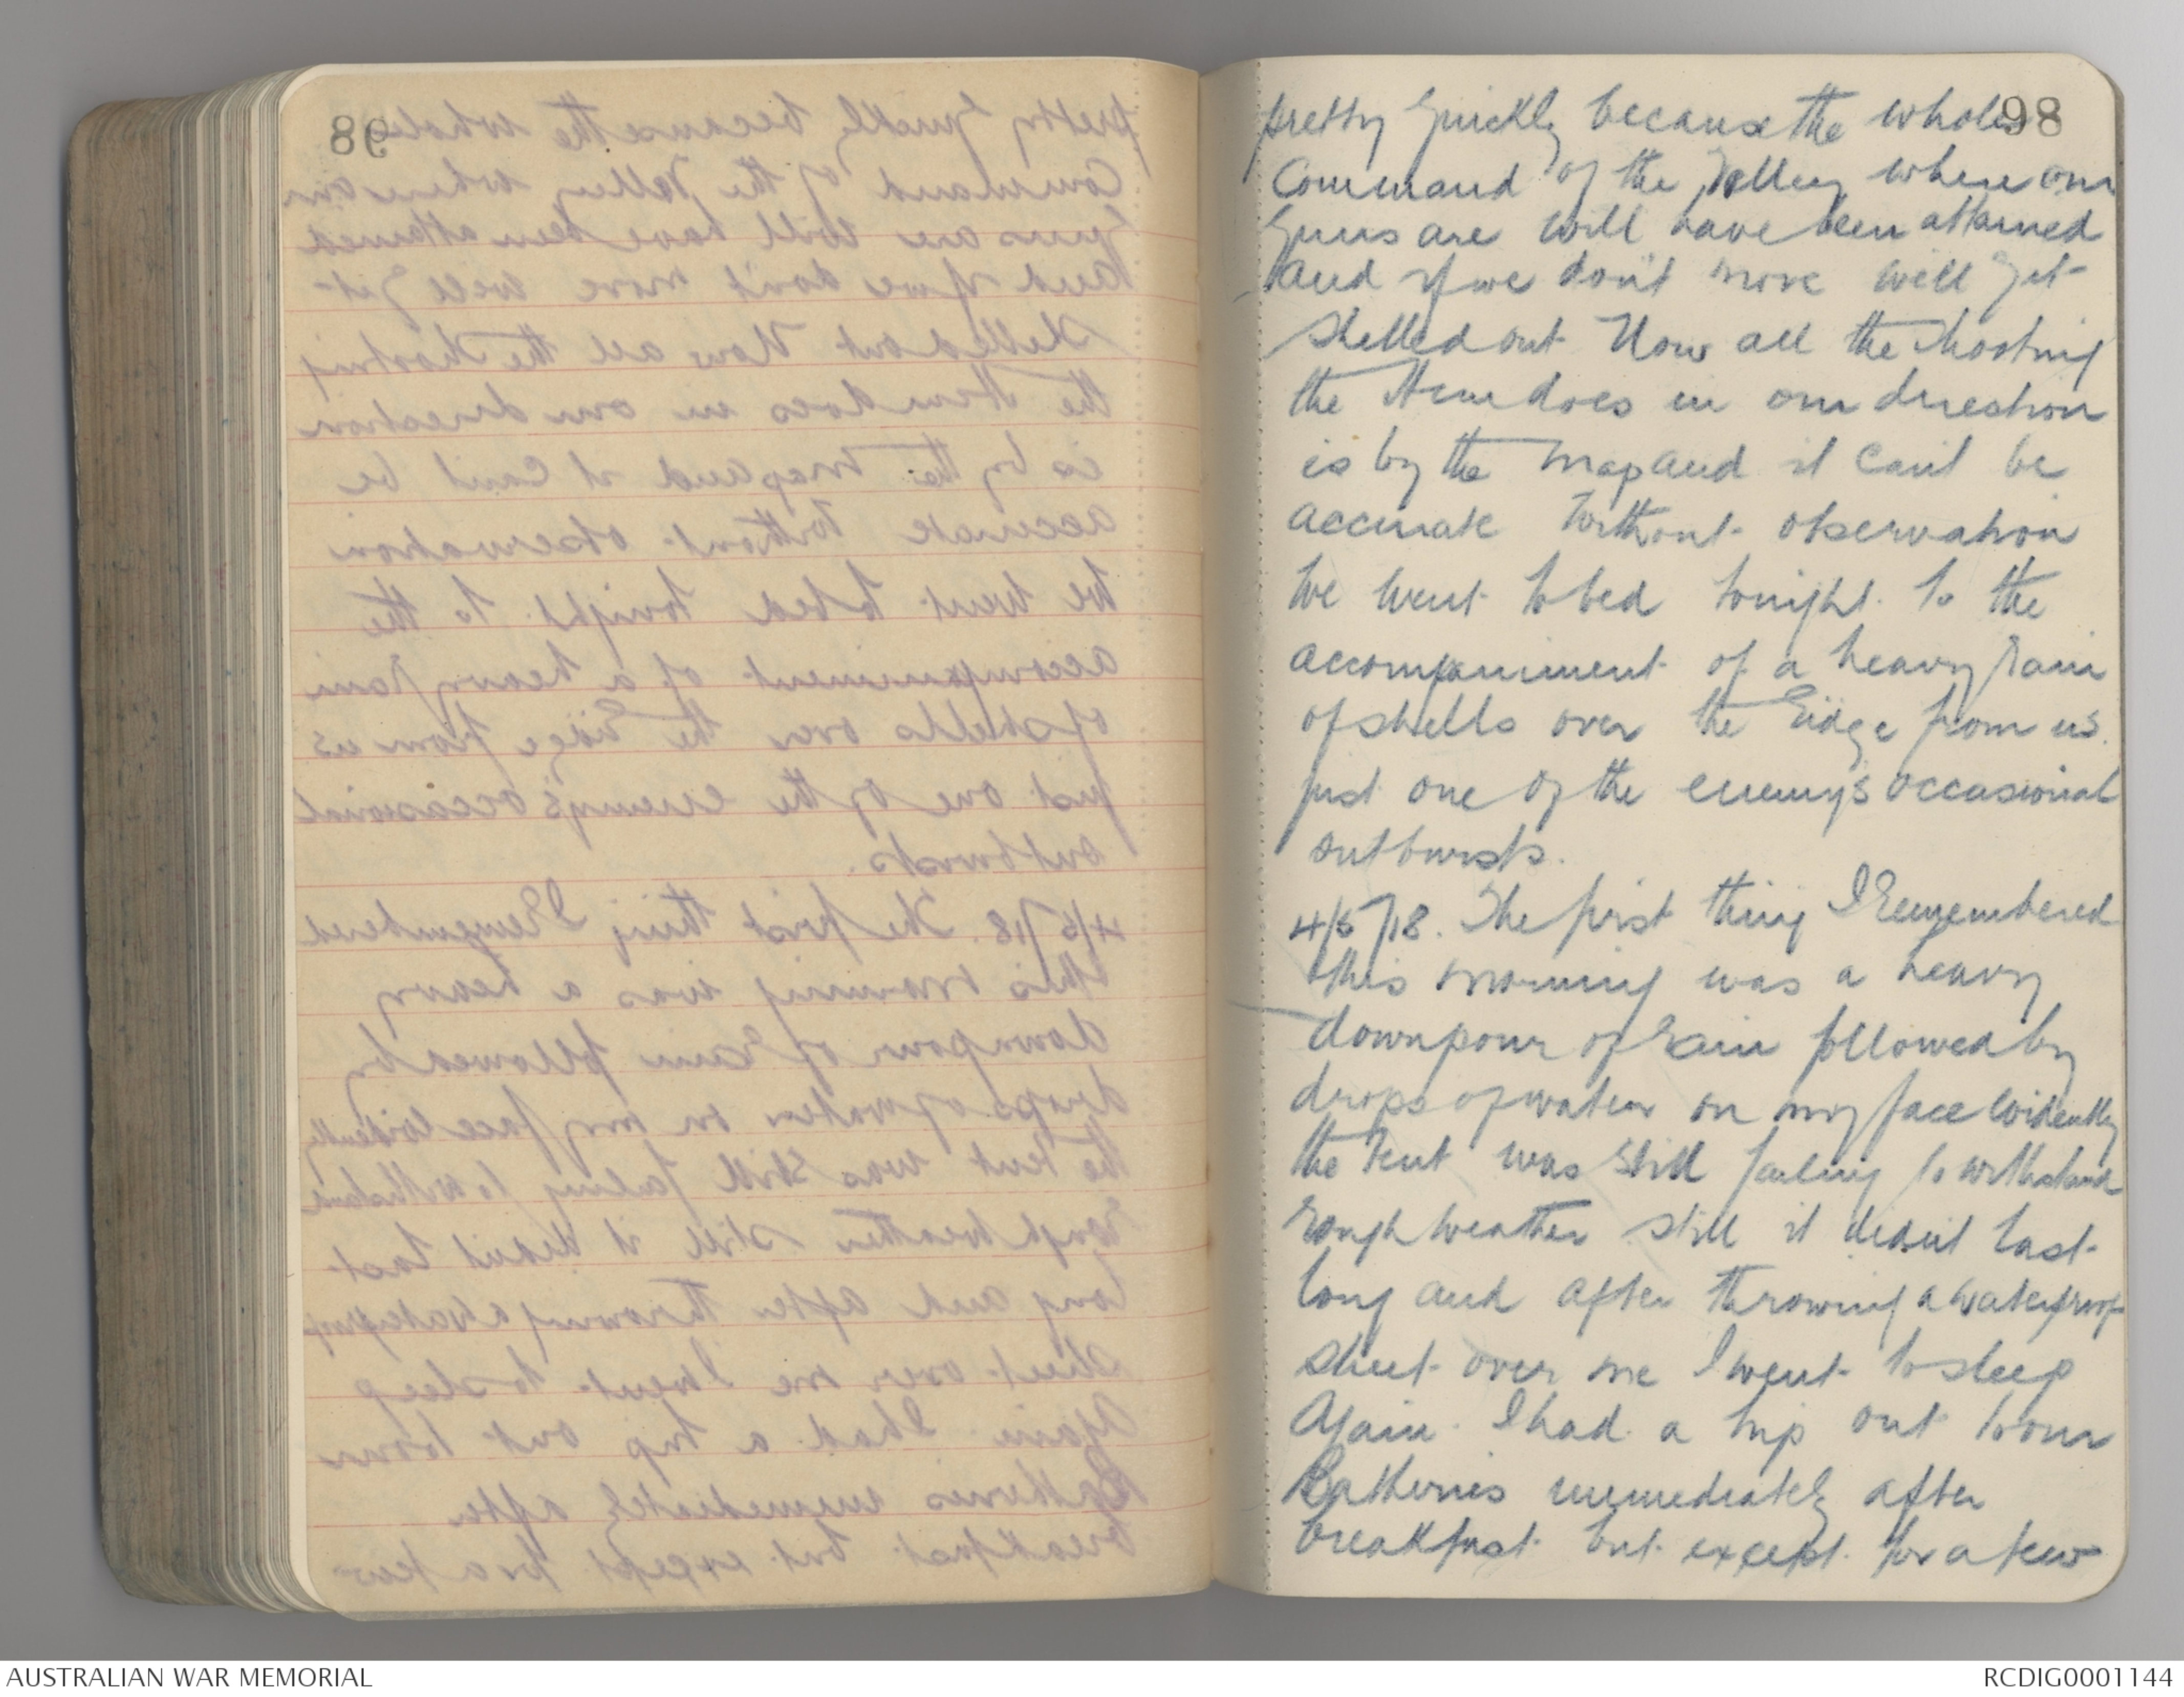 98
pretty quickly because the whole
Command of the Valley where our
guns are will have been attained
and if we don't move will get
shelled out Now all the shooting
the Hun does in our direction
is by the map and it can't be
accurate without observation
We went to bed tonight to the
accompaniment of a heavy rain
of shells over the ridge from us
just one of the enemy's occasional
outbursts.
4/5/18. The first thing I remembered
this morning was a heavy
downpour of rain followed by
drops of water on my face evidently
the tent was still failing to withstand
rough weather still it didn't last
long and after throwing a waterproof
sheet over me I went to sleep
again. I had a trip out to our
Batteries immediately after
breakfast but except for a few
AUSTRALIAN WAR MEMORIAL
RCDIG0001144